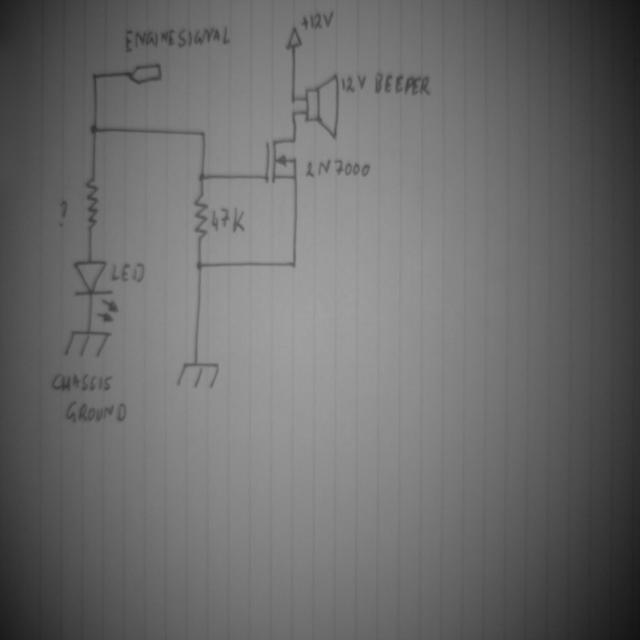 ENGINESIGNAL
+12V
12V BEEPER
2N7000
?
47K
LED
CHASSIS
GROUND